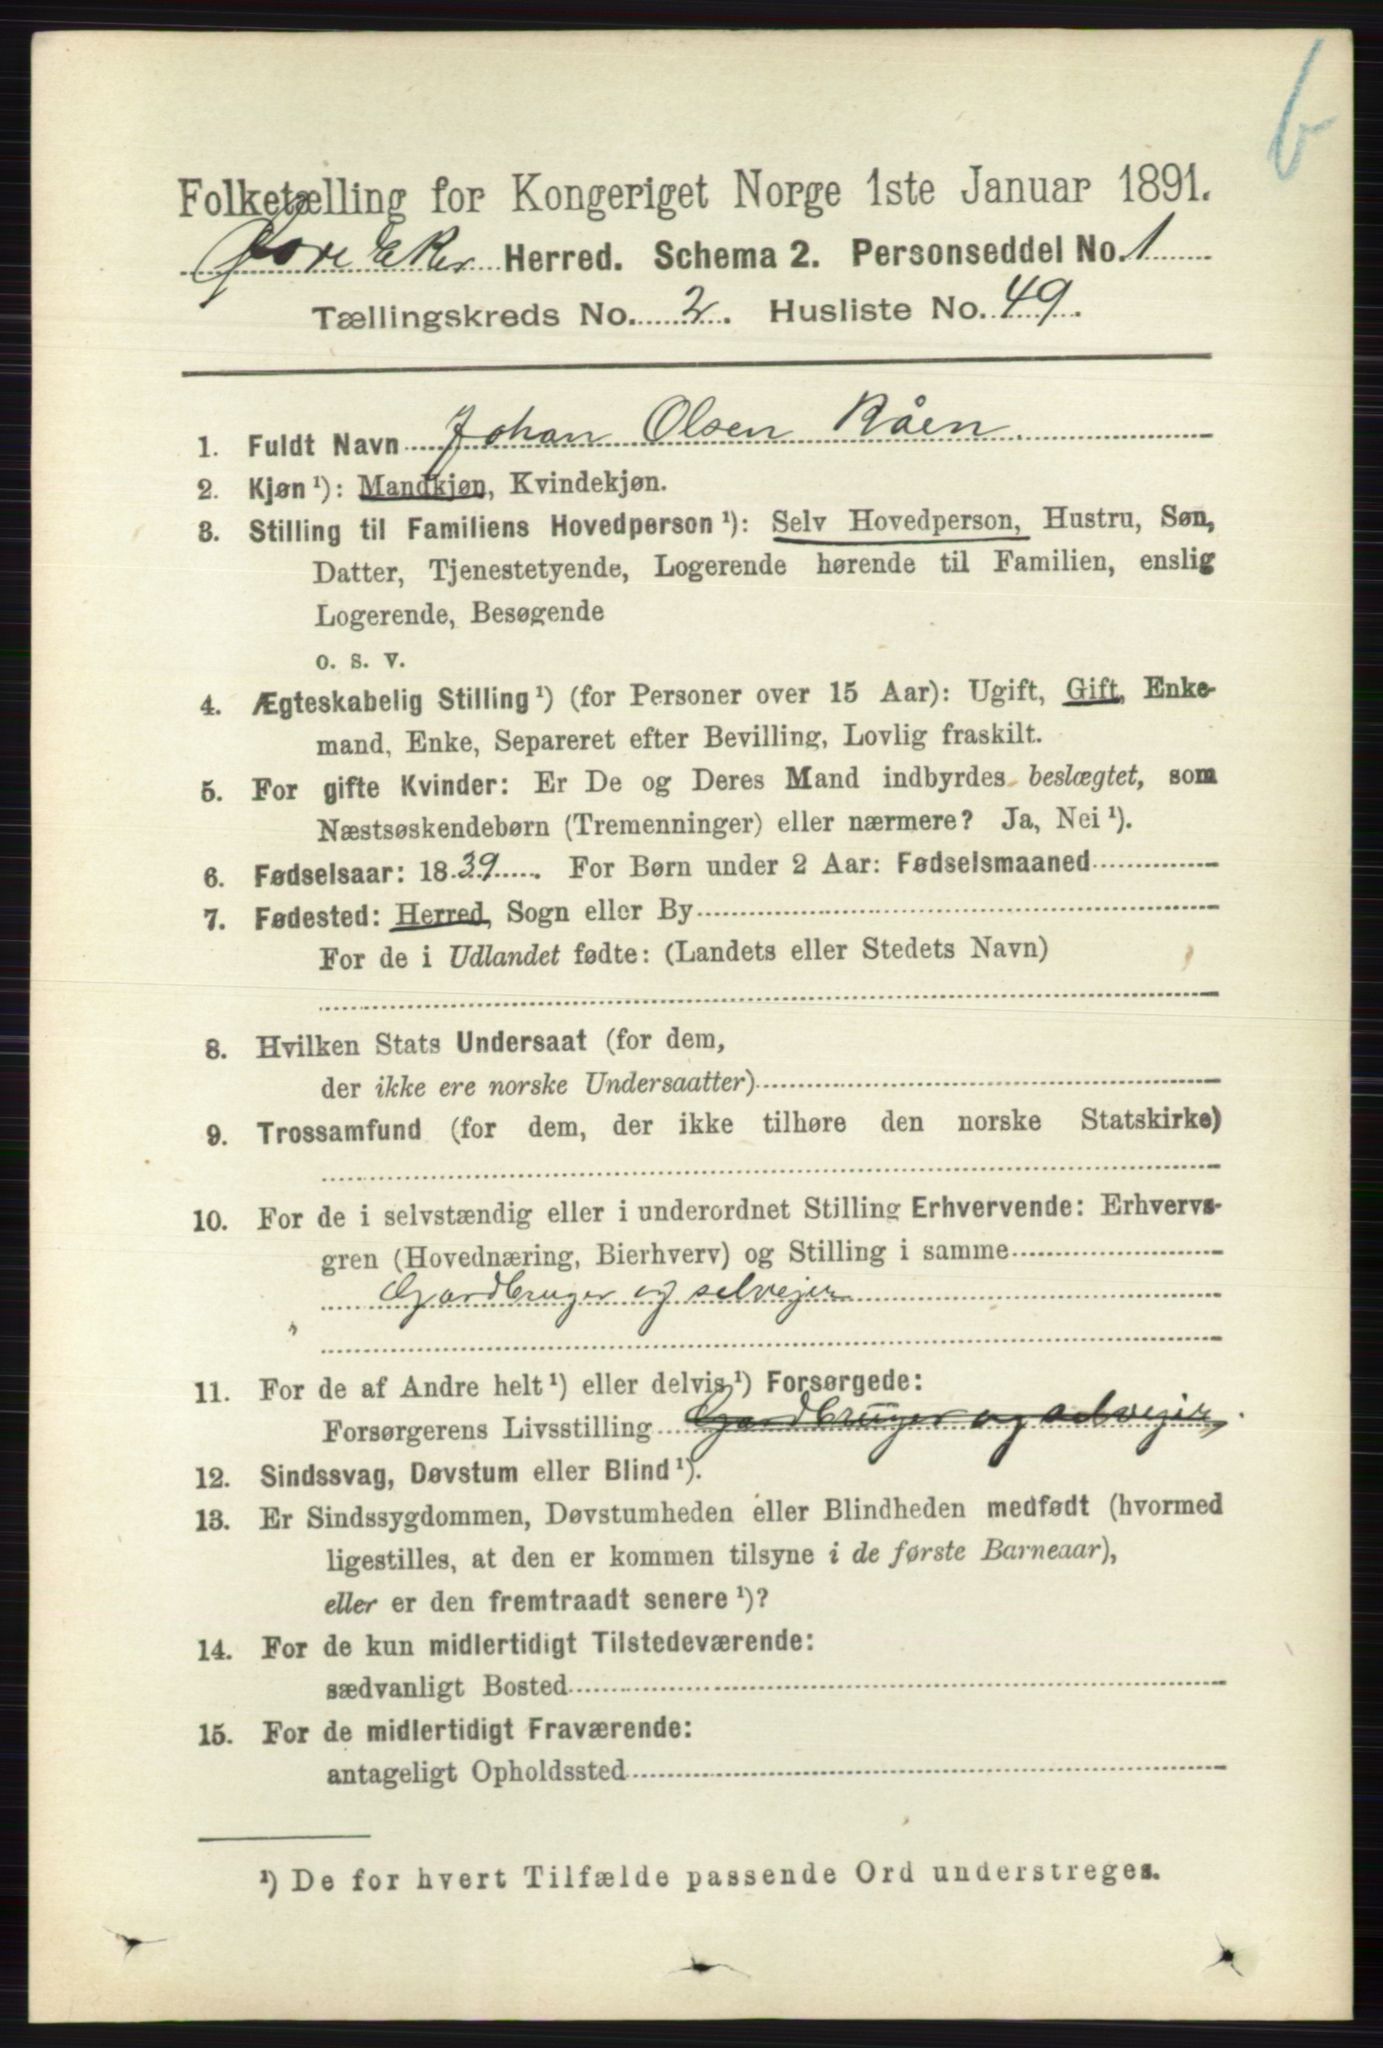 6
Folketælling for Kongeriget Norge 1ste Januar 1891.
Øvre Eker Herred. Schema 2. Personseddel No. 1
Tællingskreds No. 2. Husliste No. 49.
1. Fuldt Navn Johan Olsen Råen
2. Kjøn ¹): Mandkjøn, Kvindekjøn.
3. Stilling til Familiens Hovedperson ¹): Selv Hovedperson, Hustru, Søn,
Datter, Tjenestetyende, Logerende hørende til Familien, enslig
Logerende, Besøgende
o. s. v.
4. Ægteskabelig Stilling ¹) (for Personer over 15 Aar): Ugift, Gift, Enke-
mand, Enke, Separeret efter Bevilling, Lovlig fraskilt.
5. For gifte Kvinder: Er De og Deres Mand indbyrdes beslægtet, som
Næstsøskendebørn (Tremenninger) eller nærmere? Ja, Nei ¹).
6. Fødselsaar: 1839. For Børn under 2 Aar: Fødselsmaaned
7. Fødested: Herred, Sogn eller By
For de i Udlandet fødte: (Landets eller Stedets Navn)
8. Hvilken Stats Undersaat (for dem,
der ikke ere norske Undersaatter)
9. Trossamfund (for dem, der ikke tilhøre den norske Statskirke)
10. For de i selvstændig eller i underordnet Stilling Erhvervende: Erhvervs-
gren (Hovednæring, Bierhverv) og Stilling i samme
Gardbruger og selvejer
11. For de af Andre helt ¹) eller delvis ¹) Forsørgede:
Forsørgerens Livsstilling Gardbruger og selvejer.
12. Sindssvag, Døvstum eller Blind ¹).
13. Er Sindssygdommen, Døvstumheden eller Blindheden medfødt (hvormed
ligestilles, at den er kommen tilsyne i de første Barneaar),
eller er den fremtraadt senere ¹)?
14. For de kun midlertidigt Tilstedeværende:
sædvanligt Bosted
15. For de midlertidigt Fraværende:
antageligt Opholdssted
¹) De for hvert Tilfælde passende Ord understreges.